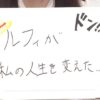 ドン!!
ルフィが
私の人生を変えた…